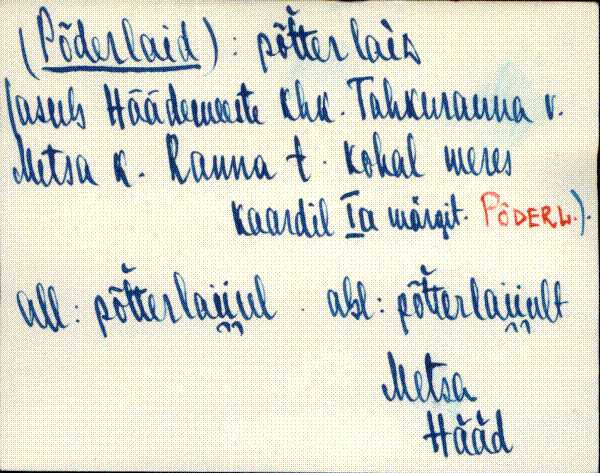 (Põderlaid) : põt̆terlaìs
(asub Häädemeeste khk. Tahkuranna v.
Metsa k. Ranna t. kohal meres
kaardil Ia märgit. PÕDERL.).
all : põt̆terlaiụl . abl : põt̆terlaiụlt
Metsa
Hääd